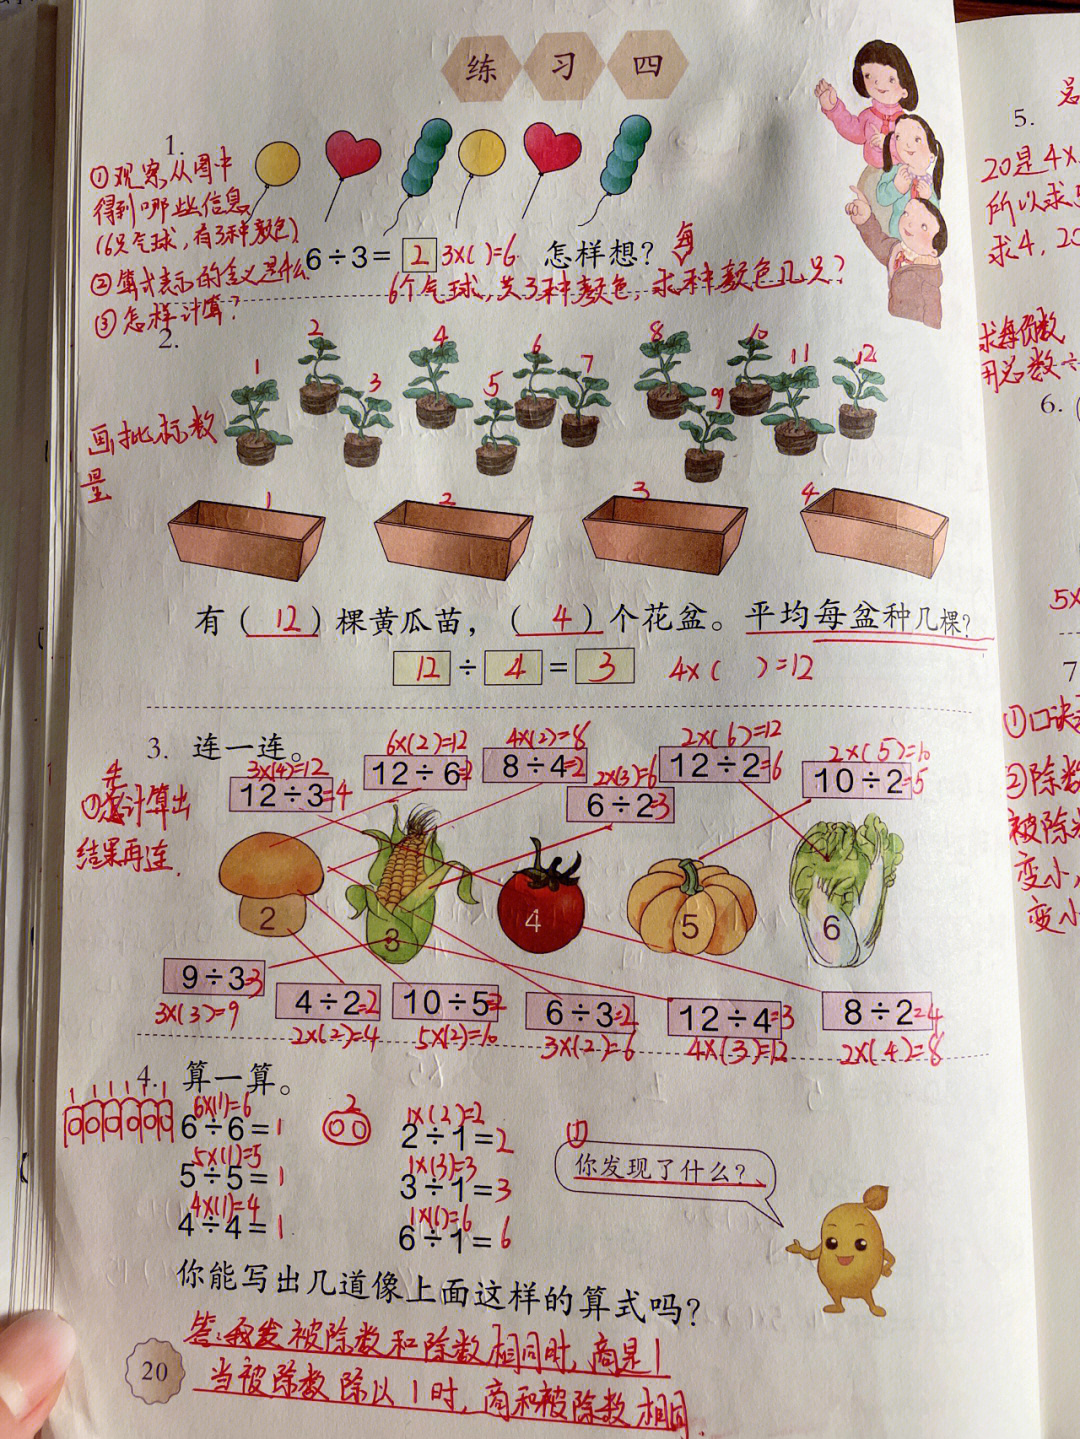 练习四
1.
①观察,从图中
得到哪些信息
(6只气球,有3种颜色)
6÷3=2 3×( )=6 怎样想?
每
②算式表示的含义是什么
6个气球,共3种颜色,求种颜色几只?
③怎样计算?
2.
1 2 3 4 5 6 7 8 9 10 11 12
画批标数
量
1 2 3 4
有(12)棵黄瓜苗,(4)个花盆。平均每盆种几棵?
12÷4=3 4×( )=12
3. 连一连。
6×(2)=12 4×(2)=8 2×(6)=12 2×(5)=10
3×(4)=12 12÷6=2 8÷4=2 12÷2=6 10÷2=5
12÷3=4 2×(3)=6
6÷2=3
①计算出
结果再连.
2 3 4 5 6
9÷3=3 4÷2=2 10÷5=2 6÷3=2 12÷4=3 8÷2=4
3×(3)=9 2×(2)=4 5×(2)=10 3×(2)=6 4×(3)=12 2×(4)=8
4. 算一算。
1 1 1 1 1 1
6×(1)=6 2 1×(2)=2
6÷6=1 2÷1=2
①
你发现了什么?
5×(1)=5 1×(3)=3
5÷5=1 3÷1=3
4×(1)=4 1×(6)=6
4÷4=1 6÷1=6
你能写出几道像上面这样的算式吗?
答:我发被除数和除数相同时,商是1
当被除数除以1时,商和被除数相同.
20
5.
20是4×
所以求5
求4,20
求每份数
用总数÷
6.
5×
7
①口诀
②除数
被除
变小,
变小